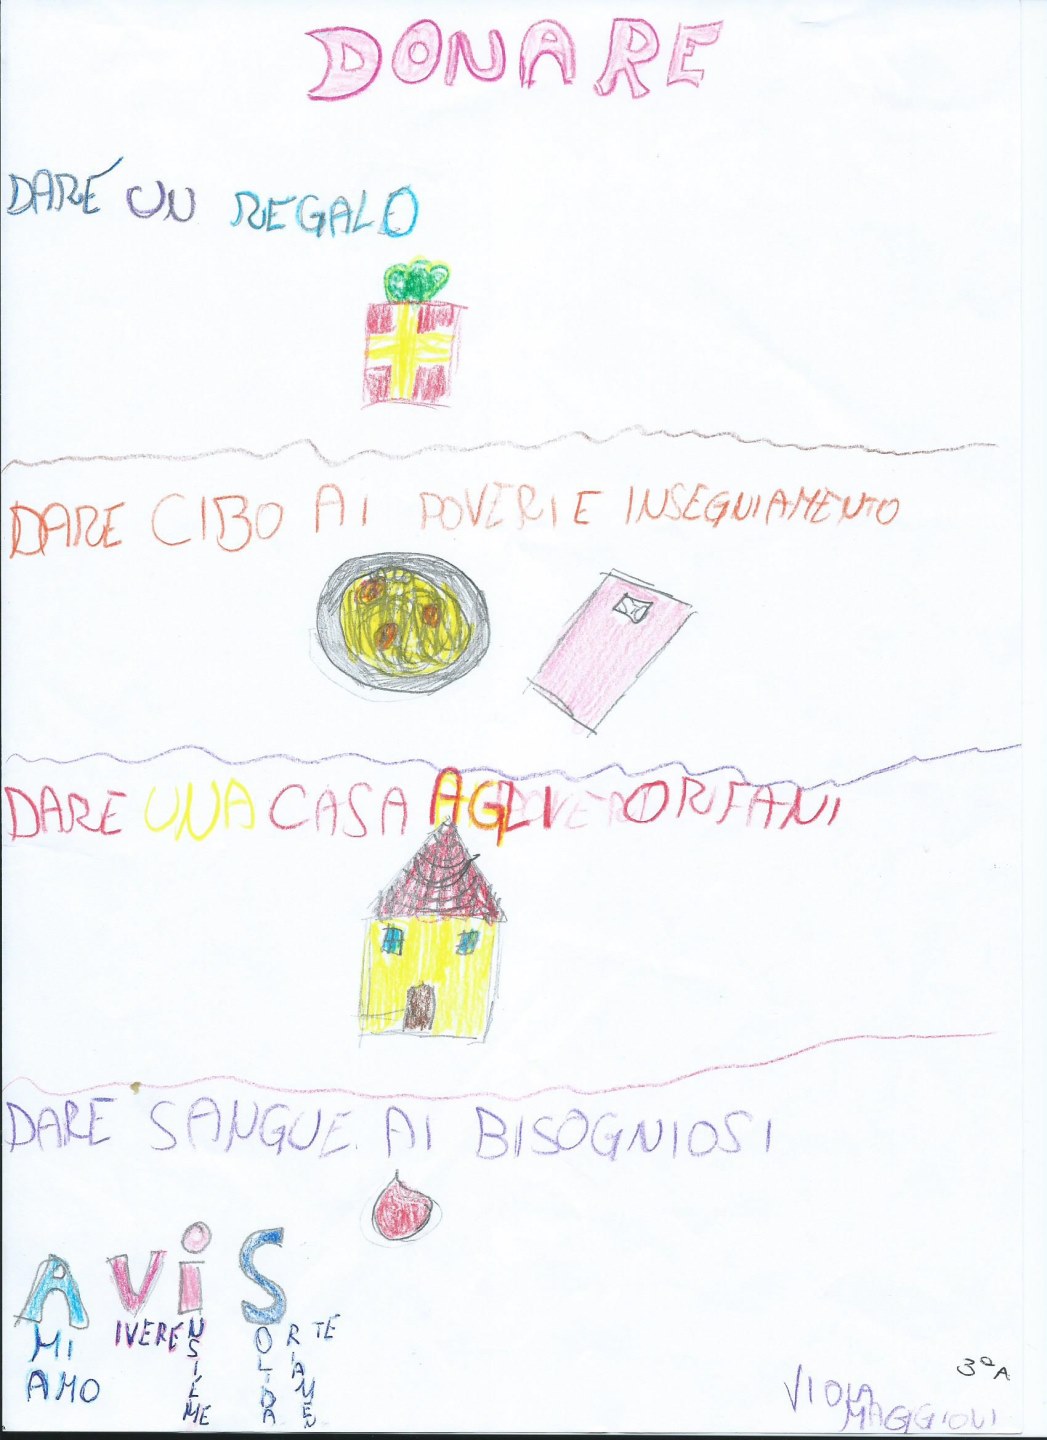 DONARE
DARE UN REGALO
DARE CIBO AI POVERI E INSEGNIAMENTO
DARE UNA CASA AGLI ORFANI
DARE SANGUE AI BISOGNIOSI
AViS
AMIAMO VIVERE iNSIEME SOLIDARIAMENTE
3ªA
VIOLA
MAGGIOLI